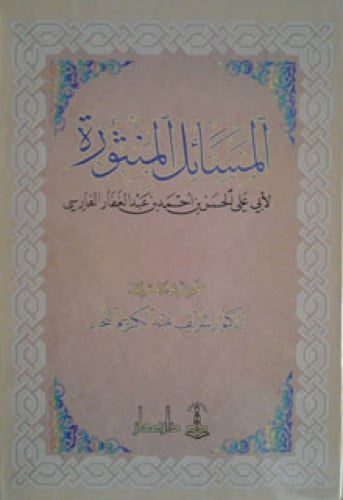 المسائل المنثورة
لأبي علي الحسن بن أحمد بن عبد الغفار الفارسي
تحقيق وتعليق
الدكتور شريف عبد الكريم النجار
دار عمار